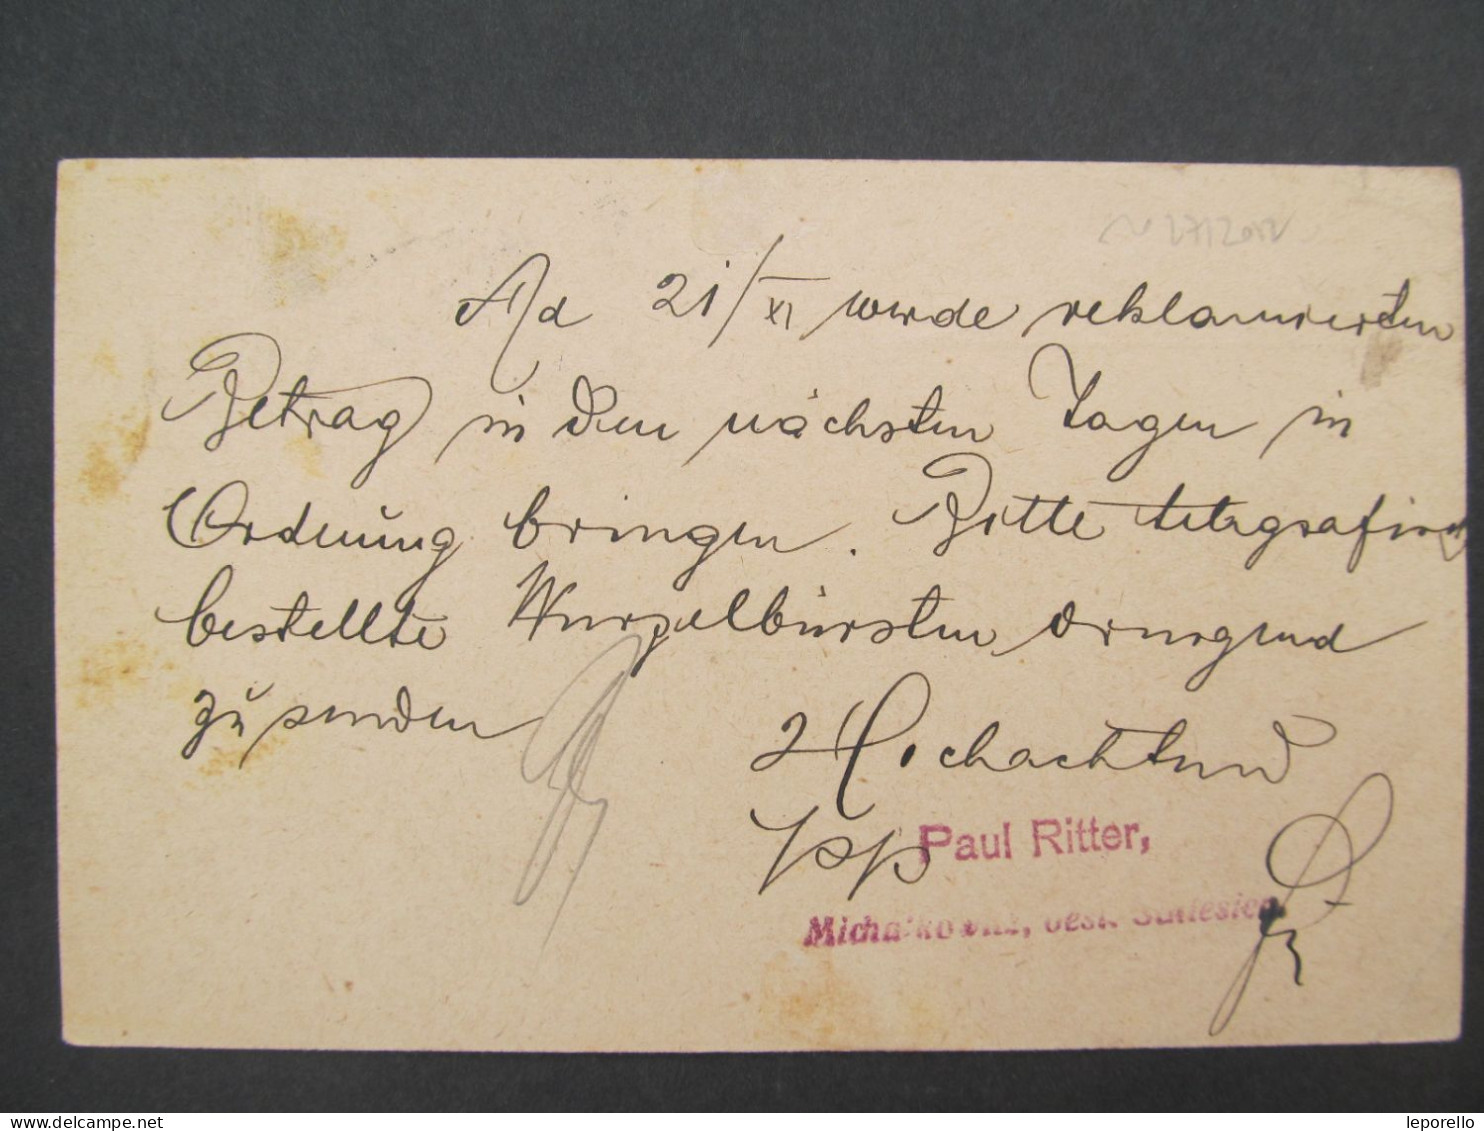 Ad 21/XI werde reklamierten
Betrag in den nächsten Tagen in
Ordnung bringen. Bitte telegrafisch
bestellte Wurzelbürsten dringend
zu senden
Hochachtend
pp Paul Ritter,
Michalkowitz, oest. Schlesien.
www.delcampe.net
leporello